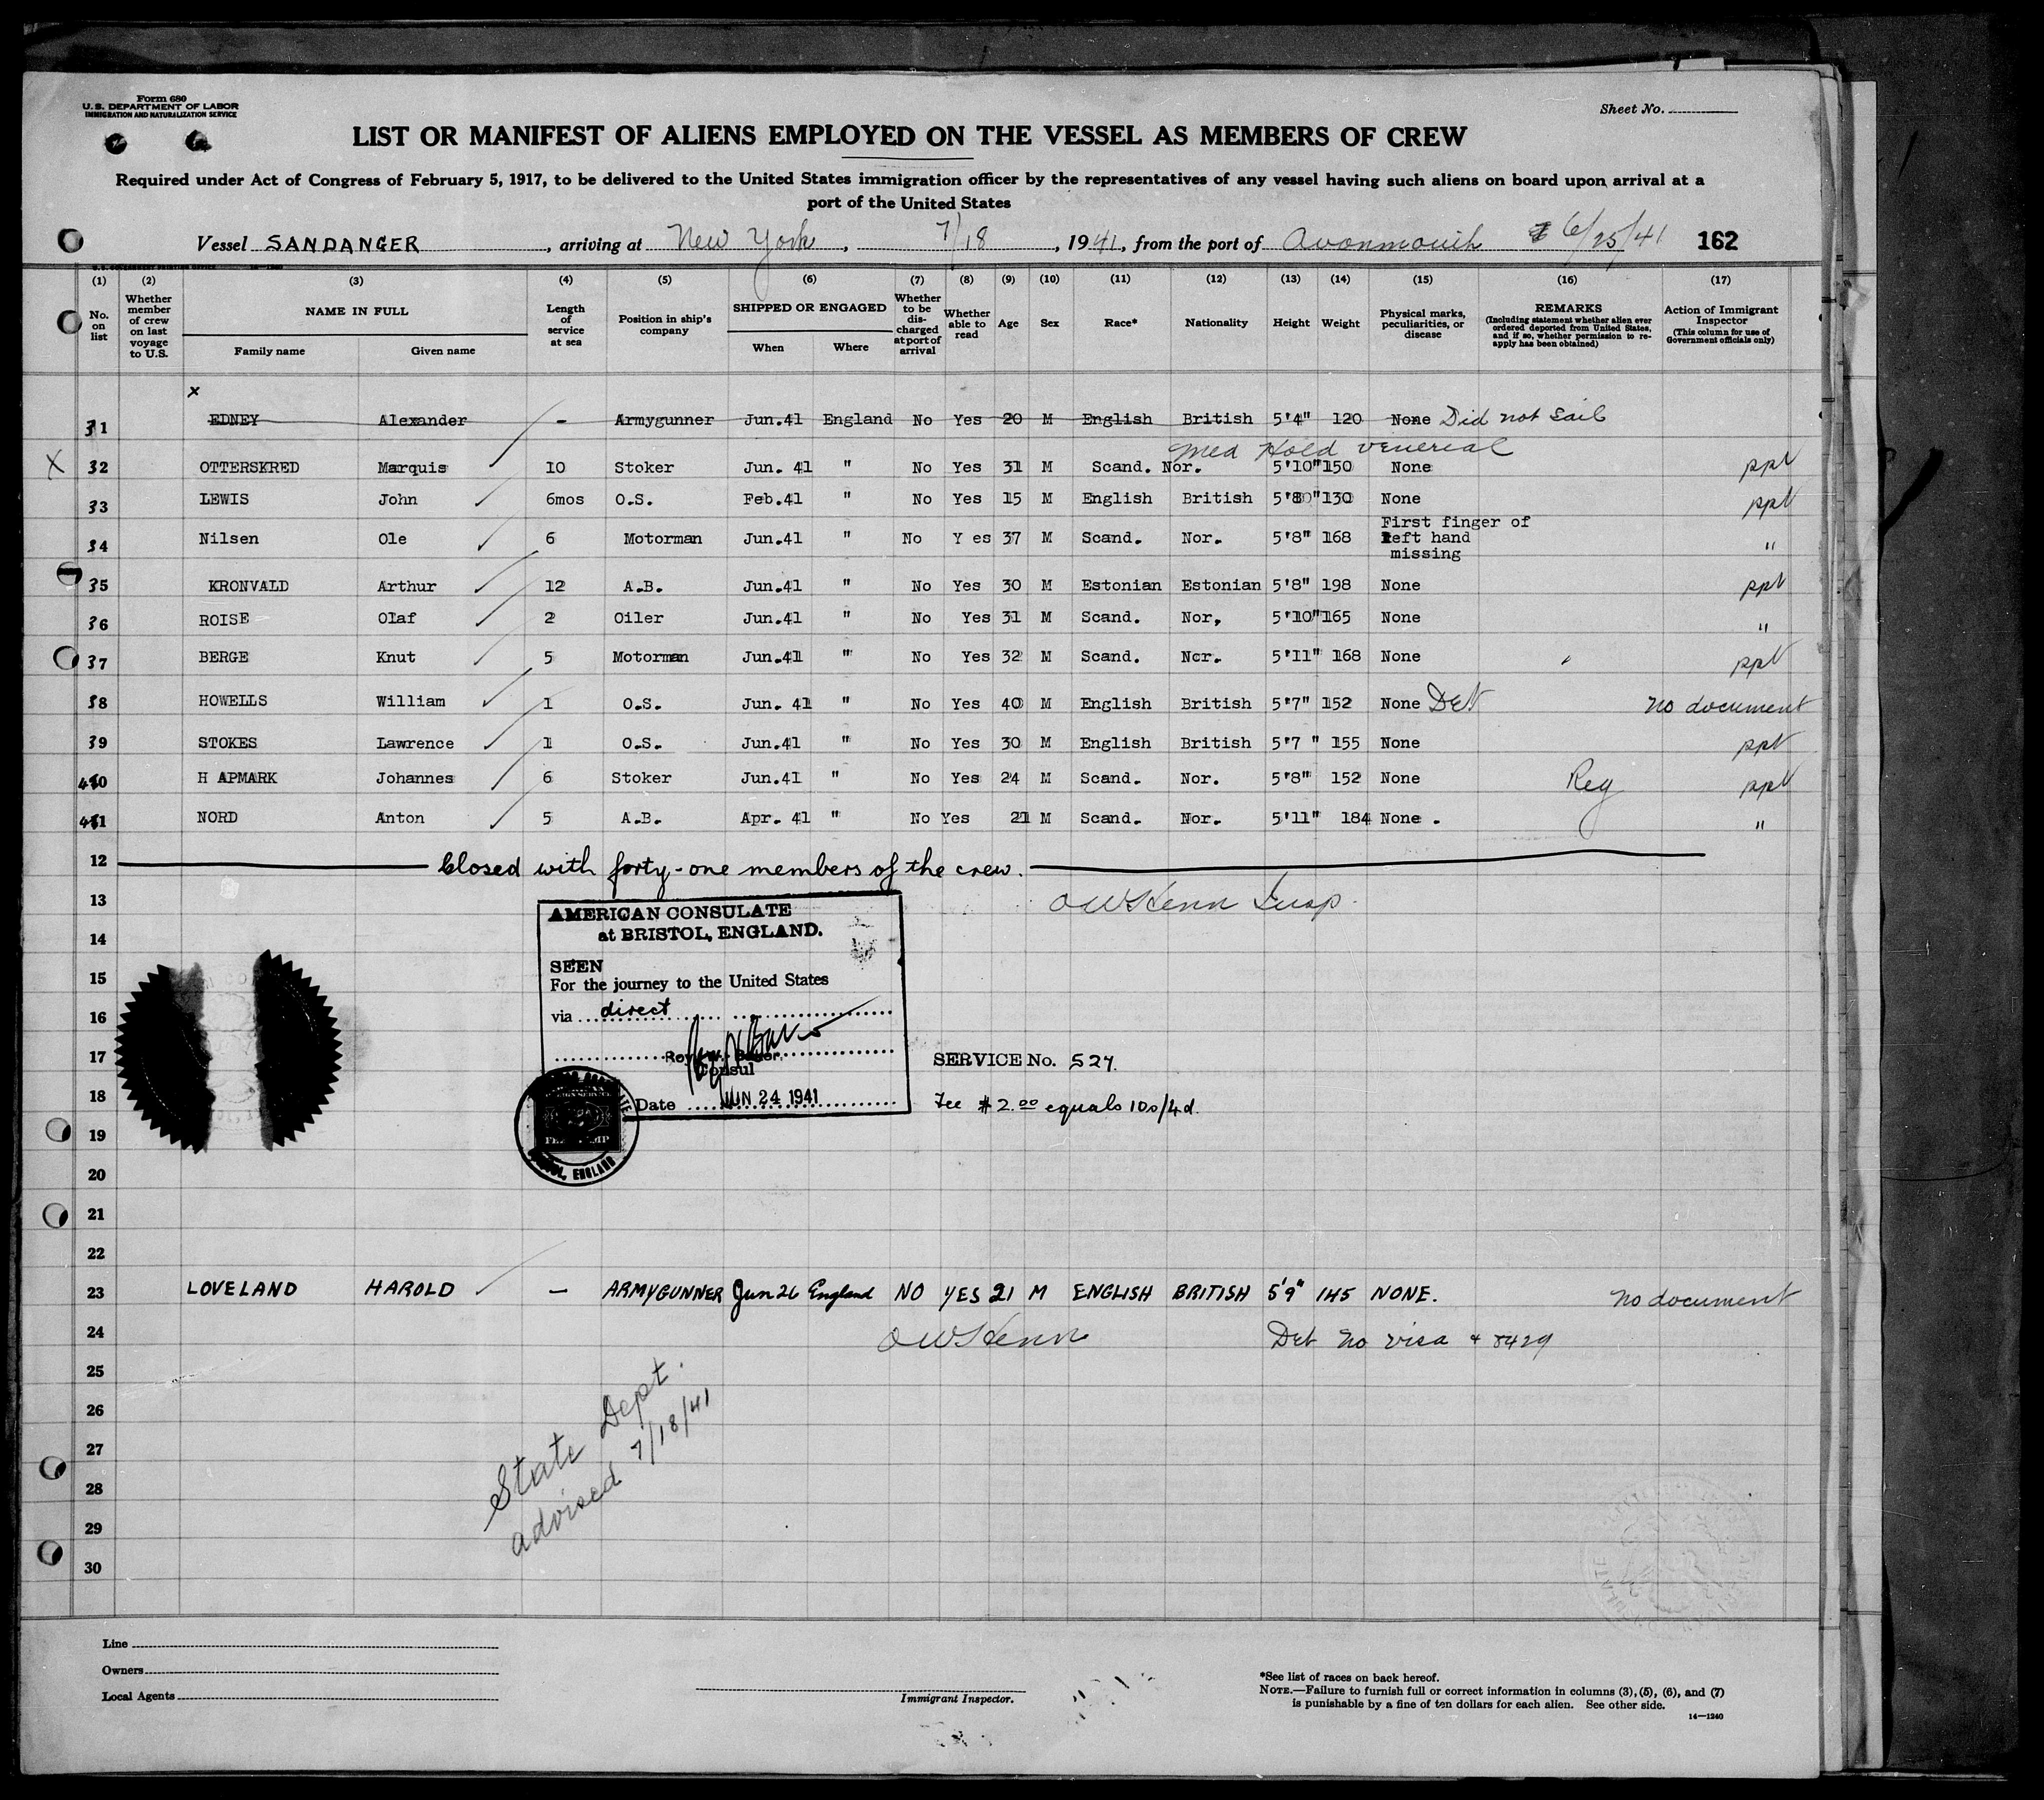 Form 680
U. S. DEPARTMENT OF LABOR
IMMIGRATION AND NATURALIZATION SERVICE
Sheet No.
LIST OR MANIFEST OF ALIENS EMPLOYED ON THE VESSEL AS MEMBERS OF CREW
Required under Act of Congress of February 5, 1917, to be delivered to the United States immigration officer by the representatives of any vessel having such aliens on board upon arrival at a
port of the United States
Vessel SANDANGER, arriving at New York, 7/18, 1941, from the port of Avonmouth 6/25/41 162
(1) (2) (3) (4) (5) (6) (7) (8) (9) (10) (11) (12) (13) (14) (15) (16) (17)
No. on list
Whether member of crew on last voyage to U.S.
NAME IN FULL
Family name Given name
Length of service at sea
Position in ship's company
SHIPPED OR ENGAGED
When Where
Whether to be discharged at port of arrival
Whether able to read
Age
Sex
Race*
Nationality
Height
Weight
Physical marks, peculiarities, or disease
REMARKS
(Including statement whether alien ever ordered deported from United States, and if so, whether permission to re-apply has been obtained)
Action of Immigrant Inspector
(This column for use of Government officials only)
x
31 EDNEY Alexander - Armygunner Jun.41 England No Yes 20 M English British 5'4" 120 None Did not Sail
Med Hold venereal
X 32 OTTERSKRED Marquis 10 Stoker Jun. 41 " No Yes 31 M Scand. Nor. 5'10" 150 None ppt
33 LEWIS John 6mos O.S. Feb.41 " No Yes 15 M English British 5'8" 130 None ppt
34 Nilsen Ole 6 Motorman Jun.41 " No Y es 37 M Scand. Nor. 5'8" 168 First finger of left hand missing "
35 KRONVALD Arthur 12 A.B. Jun.41 " No Yes 30 M Estonian Estonian 5'8" 198 None ppt
36 ROISE Olaf 2 Oiler Jun.41 " No Yes 31 M Scand. Nor, 5'10" 165 None "
37 BERGE Knut 5 Motorman Jun.41 " No Yes 32 M Scand. Nor. 5'11" 168 None ppt
38 HOWELLS William 1 O.S. Jun. 41 " No Yes 40 M English British 5'7" 152 None Det No document
39 STOKES Lawrence 1 O.S. Jun.41 " No Yes 30 M English British 5'7 " 155 None ppt
40 H APMARK Johannes 6 Stoker Jun.41 " No Yes 24 M Scand. Nor. 5'8" 152 None Reg ppt
41 NORD Anton 5 A.B. Apr. 41 " No Yes 21 M Scand. Nor. 5'11" 184 None . "
12 Closed with forty-one members of the crew.
13
14
15
16
17
18
19
20
21
22
AMERICAN CONSULATE
at BRISTOL, ENGLAND.
SEEN
For the journey to the United States
via direct
Consul
Date JUN 24 1941
BRISTOL, ENGLAND
SERVICE No. 527.
Fee $2.00 equals 10s/4d.
23 LOVELAND HAROLD - ARMYGUNNER Jun 26 England NO YES 21 M ENGLISH BRITISH 5'9" 145 NONE. No document
24 Det No visa + 8429
25
26
27
28
29
30
State Dept.
advised 7/18/41
Line
Owners
Local Agents
Immigrant Inspector.
*See list of races on back hereof.
NOTE.—Failure to furnish full or correct information in columns (3), (5), (6), and (7)
is punishable by a fine of ten dollars for each alien. See other side.
14—1240